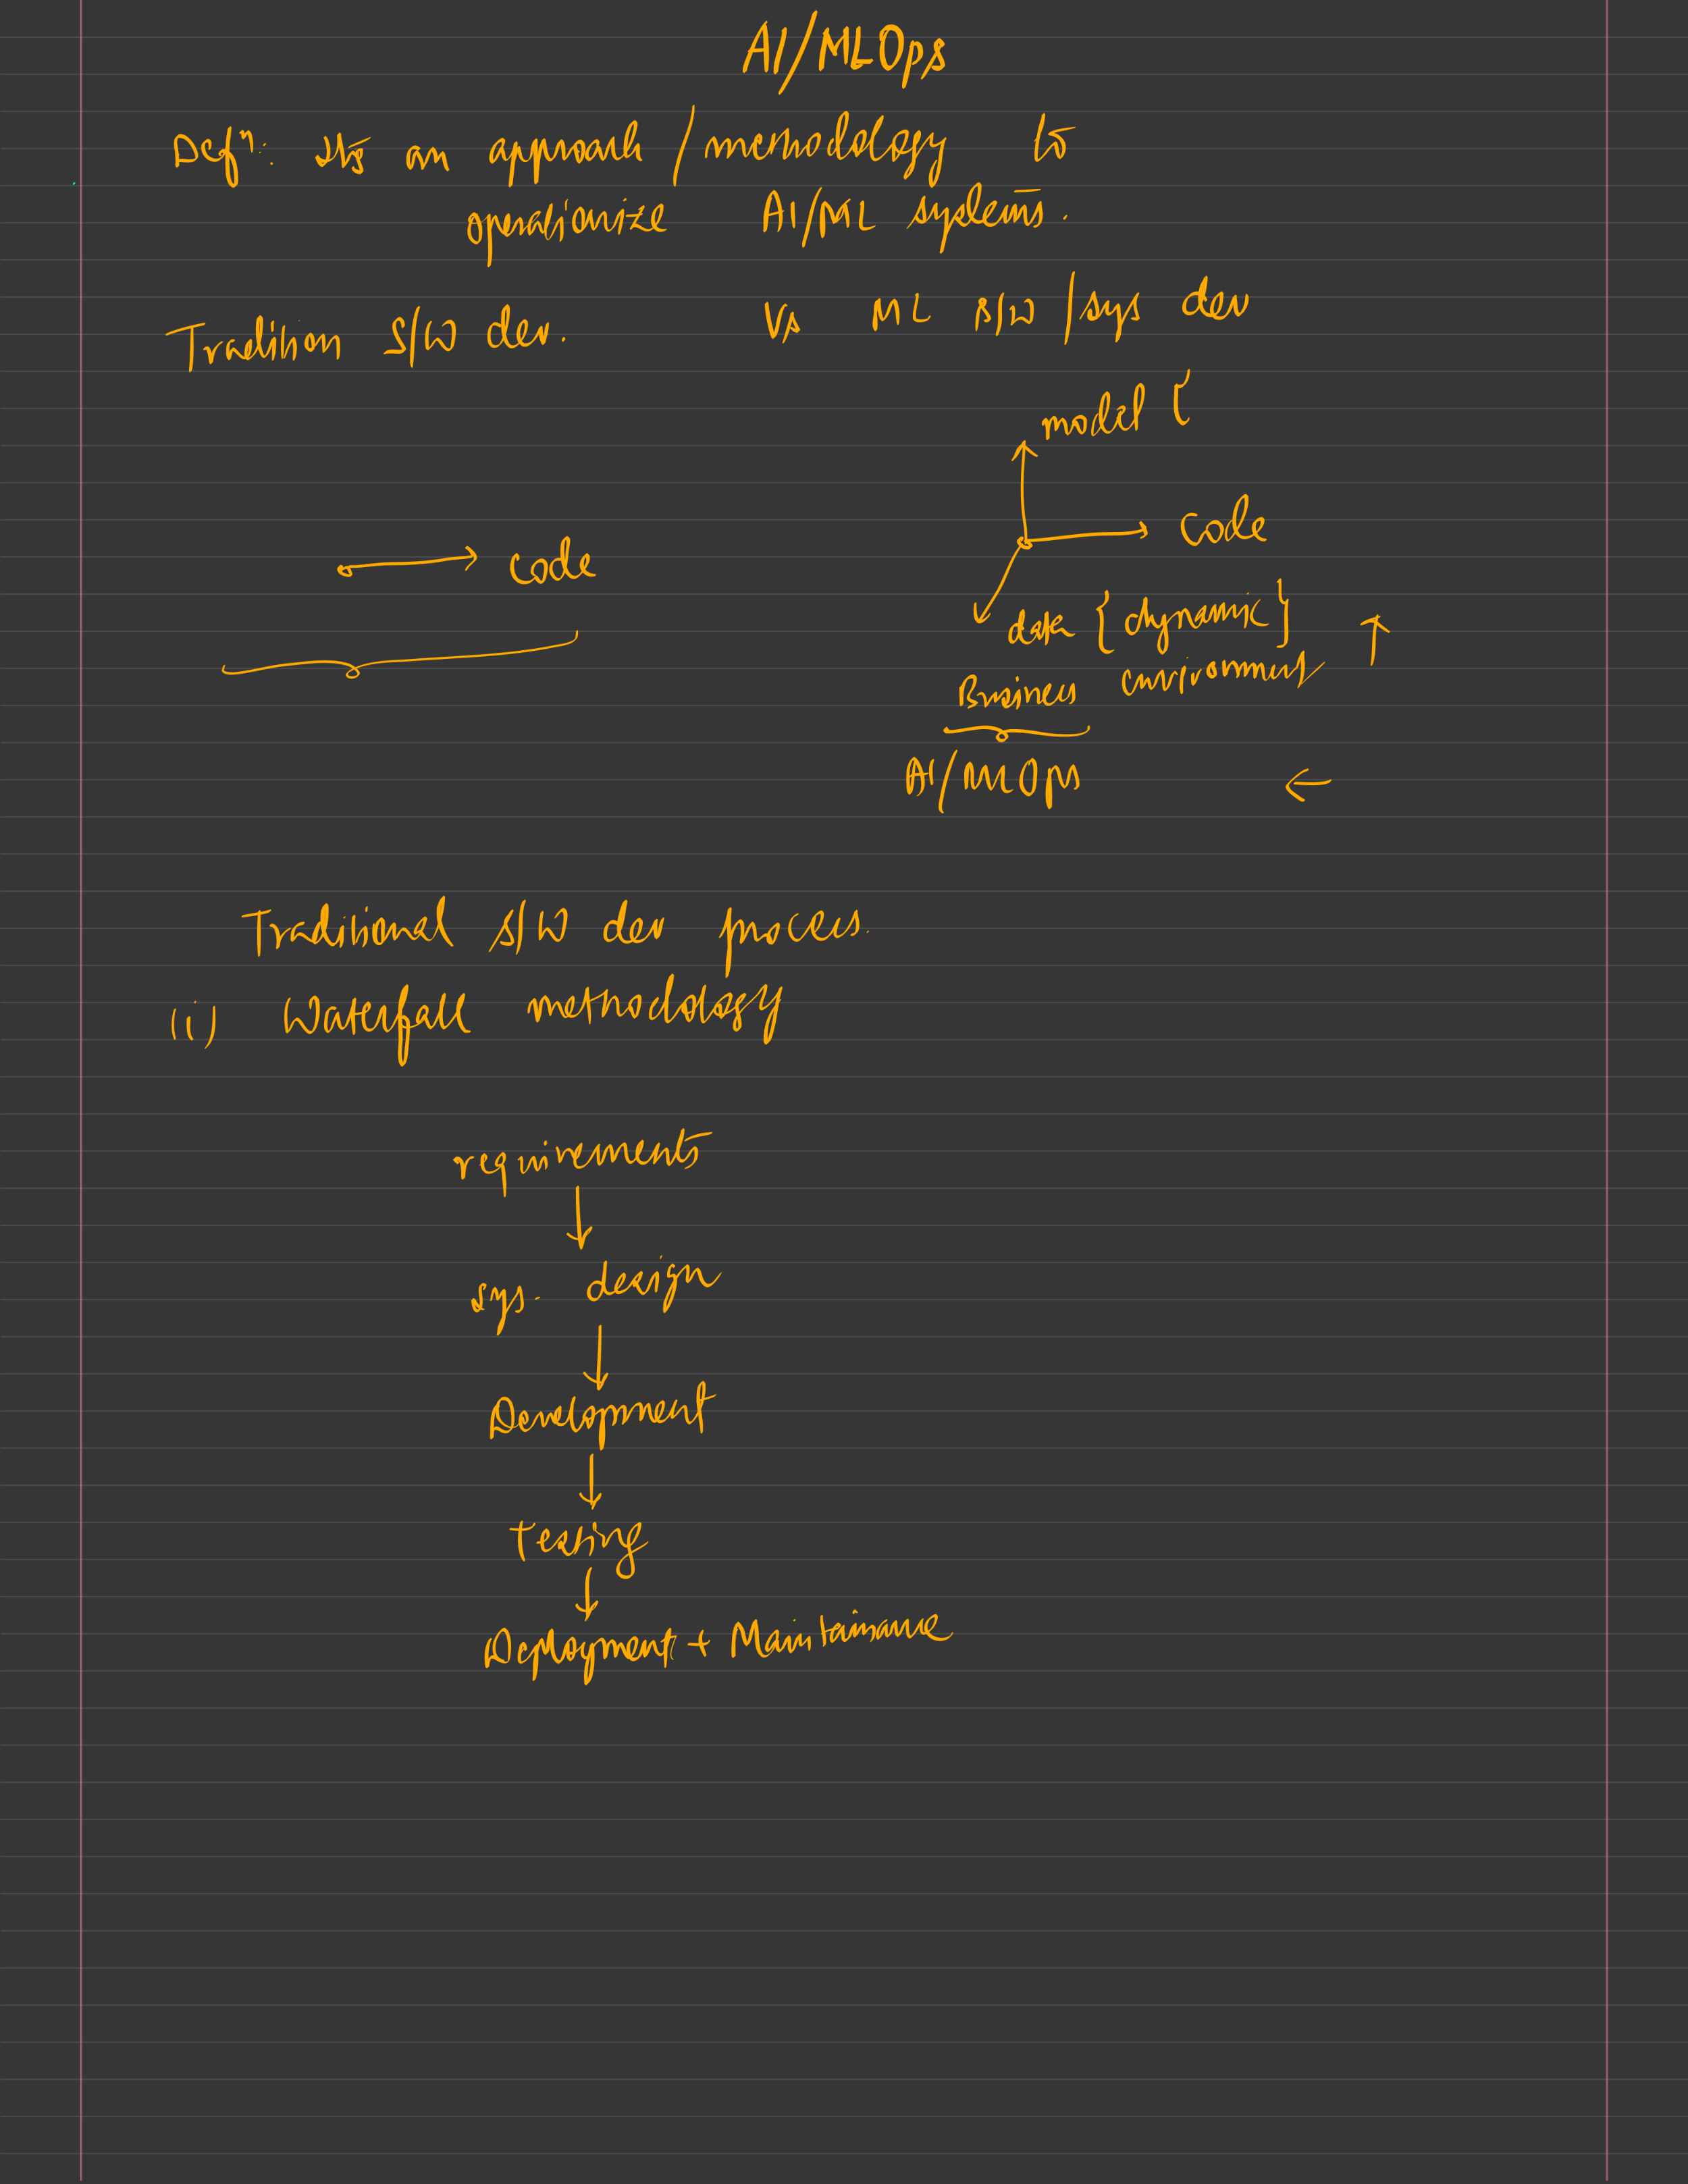 AI/MLOps
Defn: It's an approach / methodology to
operationize AI/ML systems.
Tradition S/W dev. Vs ML S/W /sys dev
model
code
code
data {dynamic} ↑
Business environment
AI/MLOps ←
Traditional S/W dev process.
(i) Waterfall methodology
requirements
↓
sys. design
↓
Development
↓
testing
↓
Deployment + Maintainance